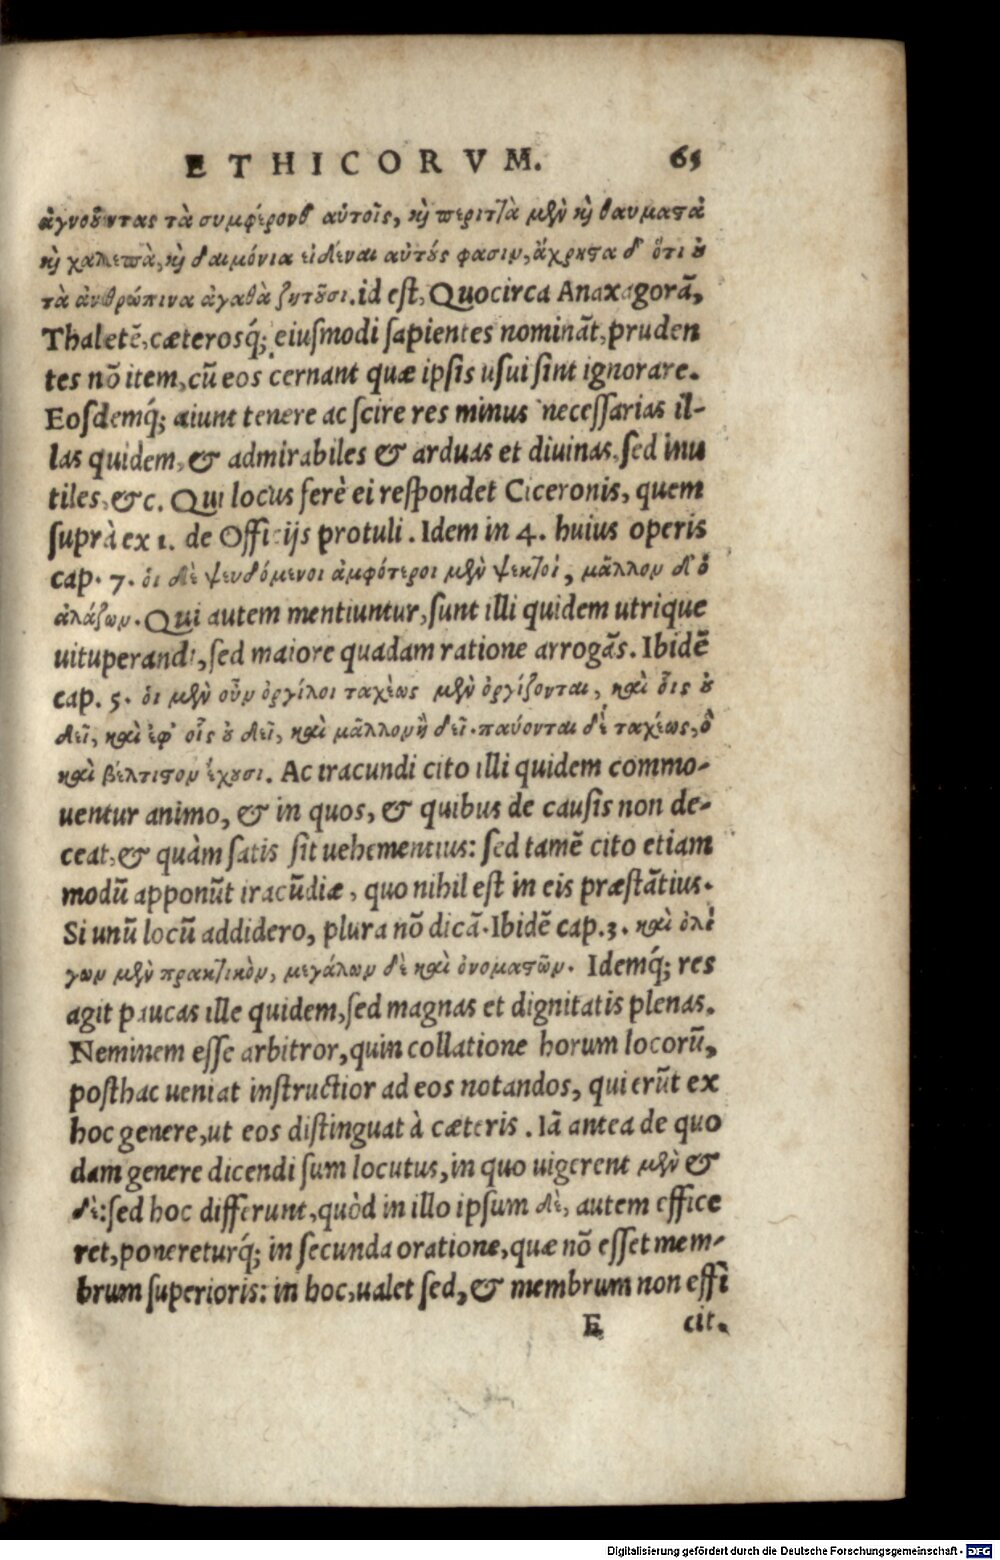 ETHICORVM. 65
ἀγνοοῦντας τὰ συμφέρονθ᾽ αὑτοῖς, κὶ περιττὰ μὲν κὶ θαυμαστὰ
κὶ χαλεπὰ, κὶ δαιμόνια εἰδέναι αὐτούς φασιν, ἄχρηστα δ᾽ ὅτι οὐ
τὰ ἀνθρώπινα ἀγαθὰ ζητοῦσι. id eſt, Quocirca Anaxagorā,
Thaletē, cæterosq́; eiuſmodi ſapientes nominãt, pruden
tes nõ item, cũ eos cernant quæ ipſis uſui ſint ignorare.
Eoſdemq́; aiunt tenere ac ſcire res minus neceſſarias il-
las quidem, & admirabiles & arduas et diuinas, ſed inu
tiles, &c. Qui locus ferè ei reſpondet Ciceronis, quem
ſuprà ex 1. de Officijs protuli. Idem in 4. huius operis
cap. 7. ὁι δὲ ψευδόμενοι ἀμφότεροι μὲν ψεκτοί, μᾶλλον δ᾽ ὁ
ἀλάζων. Qui autem mentiuntur, ſunt illi quidem utrique
uituperandi, ſed maiore quadam ratione arrogãs. Ibidẽ
cap. 5. ὁι μὲν οὖν ὀργίλοι ταχέως μὲν ὀργίζονται, καὶ οἷς οὐ
δεῖ, καὶ ἐφ᾽ οἷς οὐ δεῖ, καὶ μᾶλλον ἢ δεῖ. παύονται δὲ ταχέως, ὃ
καὶ βέλτιστον ἔχουσι. Ac iracundi cito illi quidem commo-
uentur animo, & in quos, & quibus de cauſis non de-
ceat, & quàm ſatis ſit uehementius: ſed tamẽ cito etiam
modũ apponũt iracũdiæ, quo nihil eſt in eis præſtãtius.
Si unũ locũ addidero, plura nõ dicã. Ibidẽ cap. 3. καὶ ὀλί
γων μὲν πρακτικὸν, μεγάλων δὲ καὶ ὀνομαστῶν. Idemq́; res
agit paucas ille quidem, ſed magnas et dignitatis plenas.
Neminem eſſe arbitror, quin collatione horum locorũ,
poſthac ueniat inſtructior ad eos notandos, qui erũt ex
hoc genere, ut eos diſtinguat à cæteris. Iã antea de quo
dam genere dicendi ſum locutus, in quo uigerent μὲν &
δὲ: ſed hoc differunt, quòd in illo ipſum δὲ, autem effice
ret, poneretuŕq; in ſecunda oratione, quæ nõ eſſet mem-
brum ſuperioris: in hoc, ualet ſed, & membrum non effi
E cit.
Digitalisierung gefördert durch die Deutsche Forschungsgemeinschaft - DFG